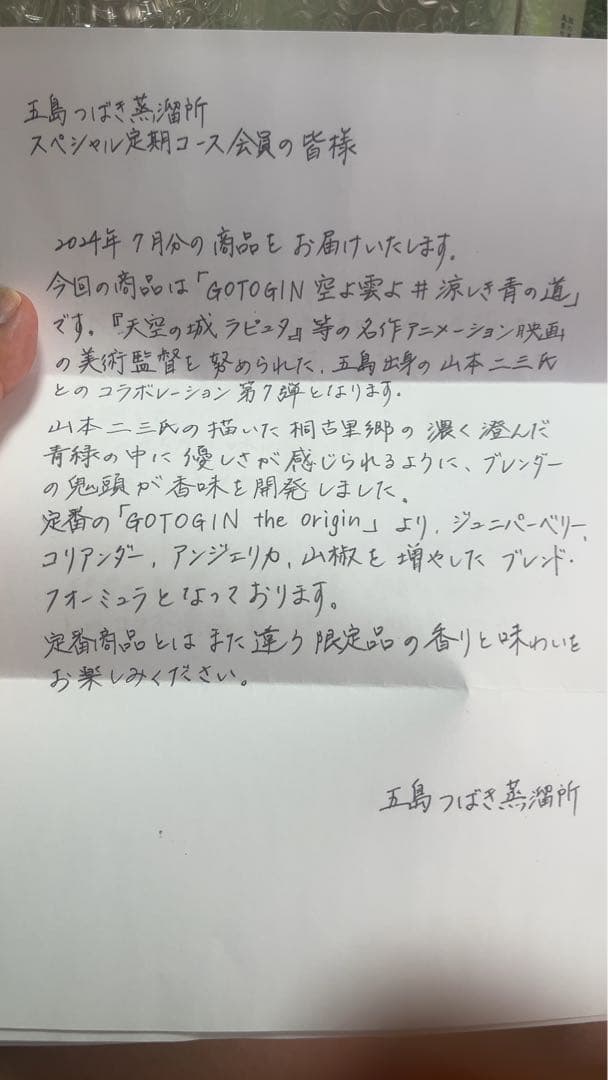 五島つばき蒸溜所
スペシャル定期コース会員の皆様
2024年7月分の商品をお届けいたします。
今回の商品は「GOTOGIN 空よ雲よ # 涼しき青の道」
です。『天空の城ラピュタ』等の名作アニメーション映画
の美術監督を努められた、五島出身の山本二三氏
とのコラボレーション第7弾となります。
山本二三氏の描いた桐古里郷の濃く澄んだ
青緑の中に優しさが感じられるように、ブレンダー
の鬼頭が香味を開発しました。
定番の「GOTOGIN the origin」より、ジュニパーベリー、
コリアンダー、アンジェリカ、山椒を増やしたブレンド・
フォーミュラとなっております。
定番商品とはまた違う限定品の香りと味わいを
お楽しみください。
五島つばき蒸溜所